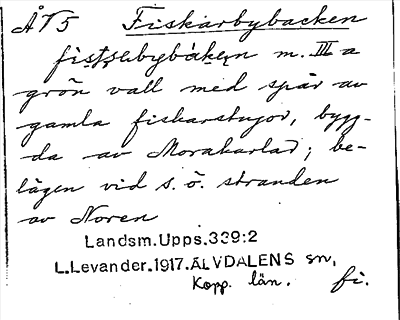 ÅT5 Fiskarbybacken
m. III a
grön vall med spår av
gamla fiskarstugor, bygg-
da av Morakarlar; be-
lägen vid s. ö. stranden
av Noren
Landsm.Upps.339:2
L.Levander.1917.ÄLVDALENS sn,
Kopp. län. fi.